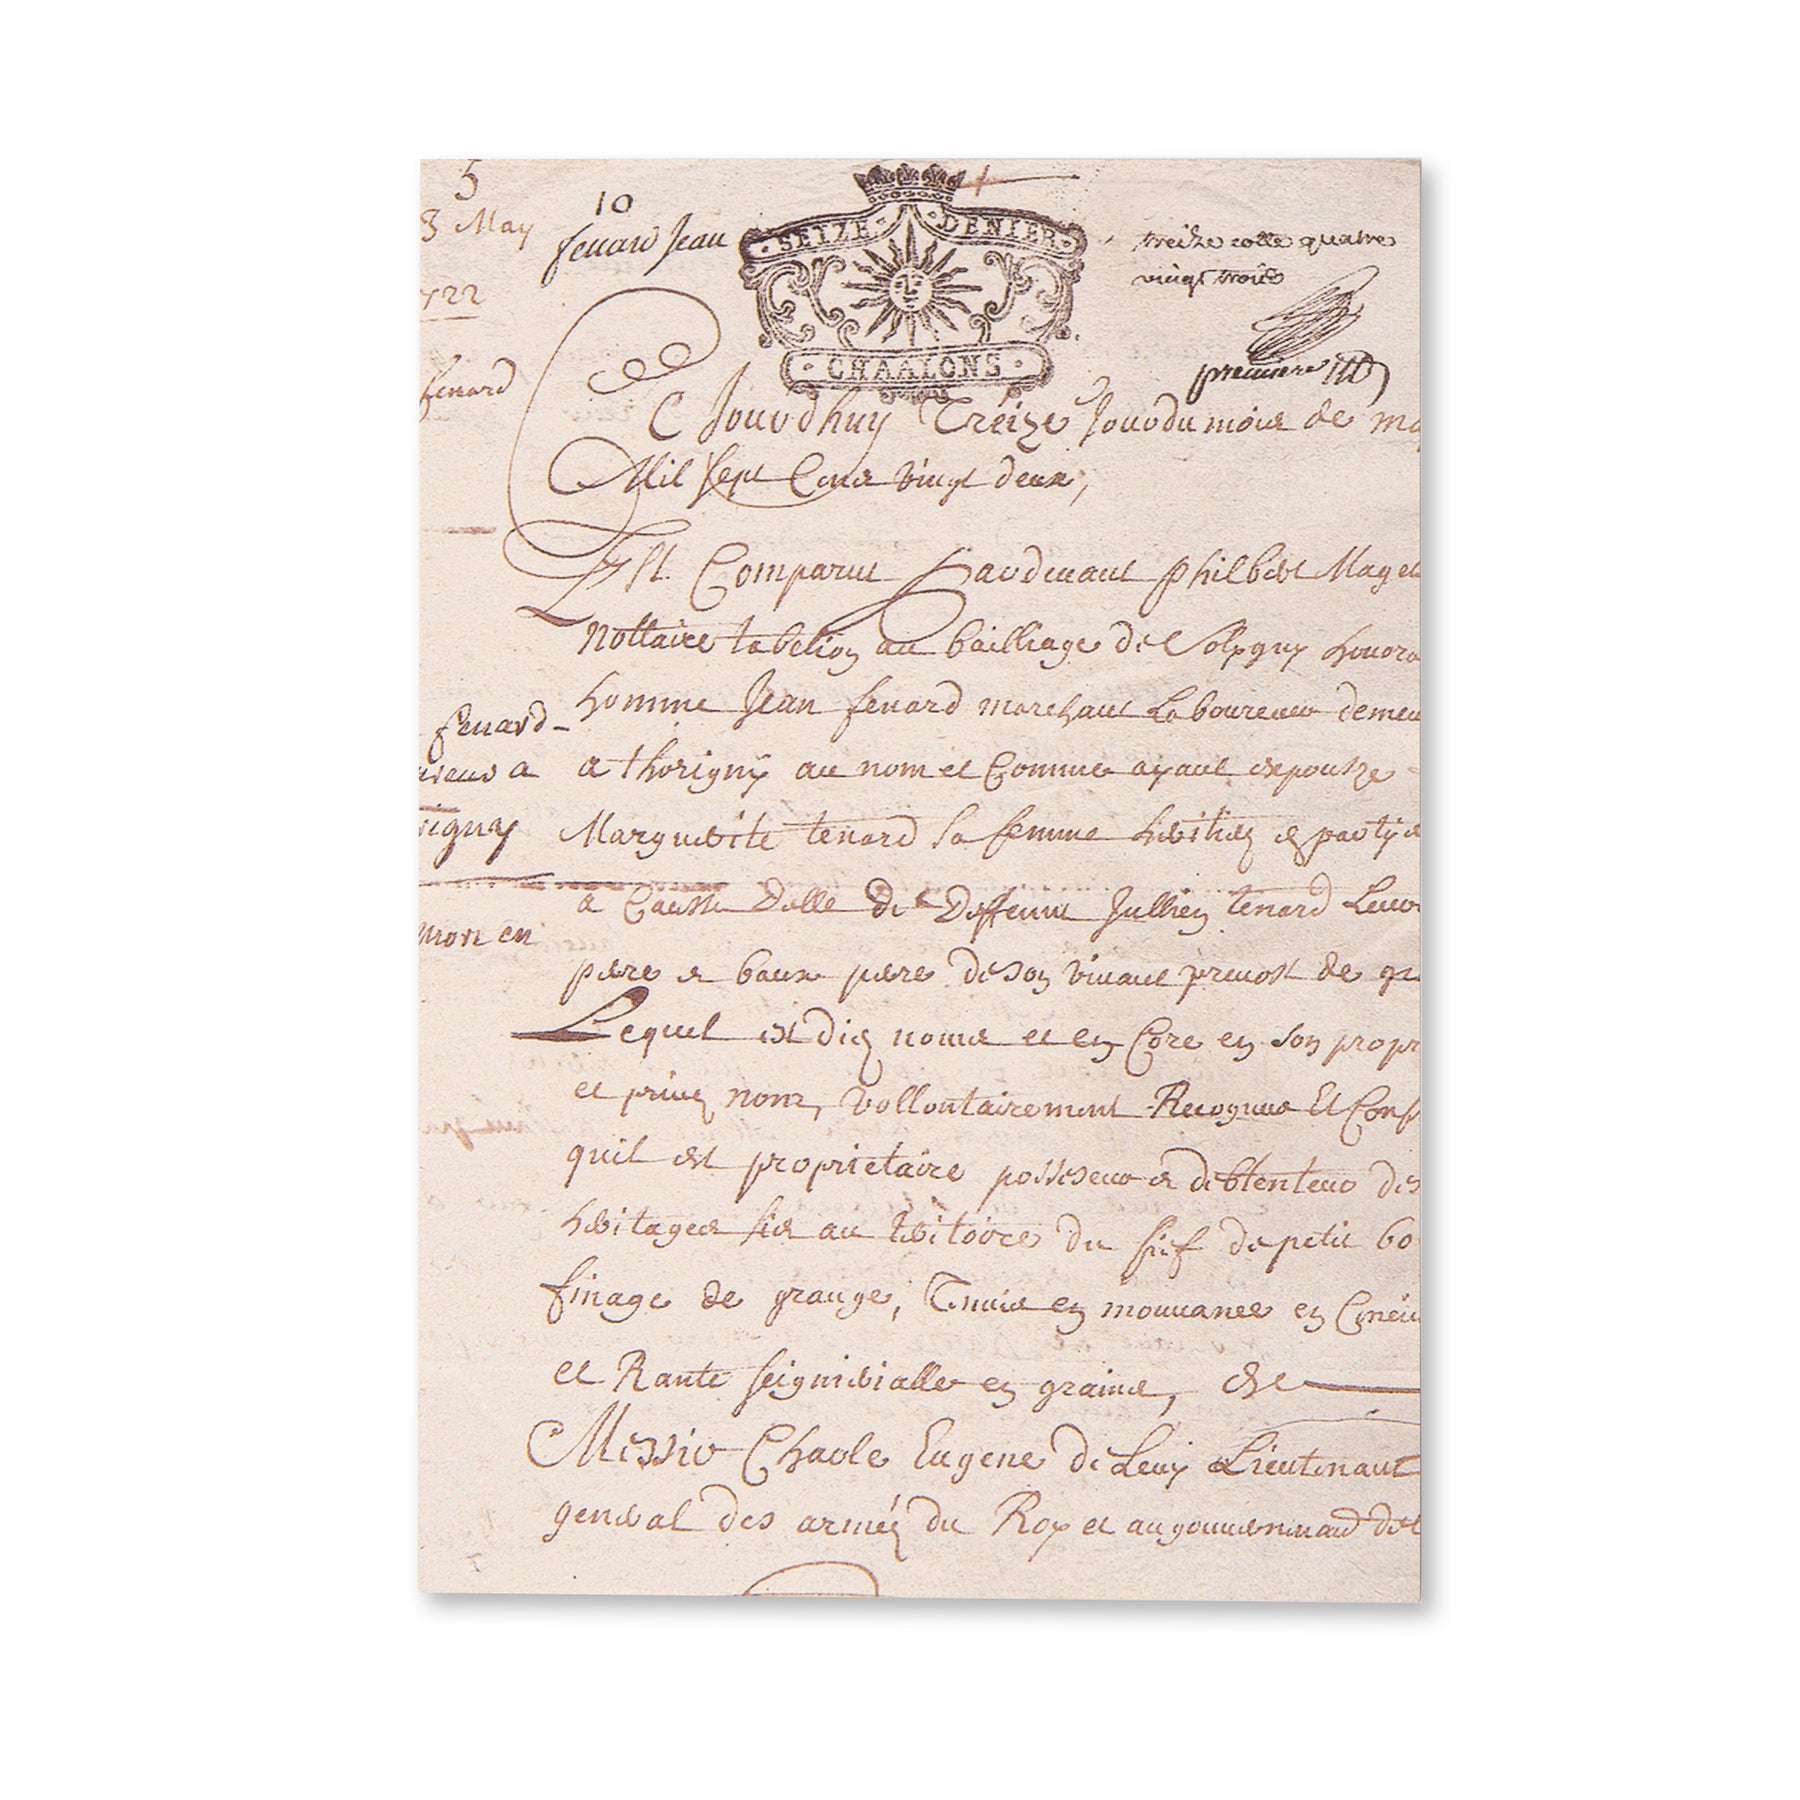 5
10
3 May
fenard Jean
SEIZE DENIER
CHAALONS
treize cotte quatre
vingt trois
722
premiere
fenard
Ce Jourdhuy Treize Jour du mois de ma
Mil sept Cens vingt deux,
Est Comparu pardevant Philbert Mage
Nottaire tabelion au bailliage de honora
homme Jean fenard marchant Laboureur demeu
fenard
a thorigny au nom et Comme ayant espouze
eur a
Marguerite tenard sa femme heritier en partye
rigny
a Causse delle de Deffunt Jullien tenard Leur
mars en
pere et baux pere de son vivant prevost de gr
Lequel es dis noms et en Core en son propr
et prive nom, vollontairement Recognu Et Conf
quil est proprietaire possesseur et debtenteur des
heritages sis au teritoire du fief de petit bo
finage de grange, Tenus en mouvance en Censiv
et Rante seignerialle en grains, de
Messire Charle Eugene de Levy Lieutenant
general des armées du Roy et au gouvernement de